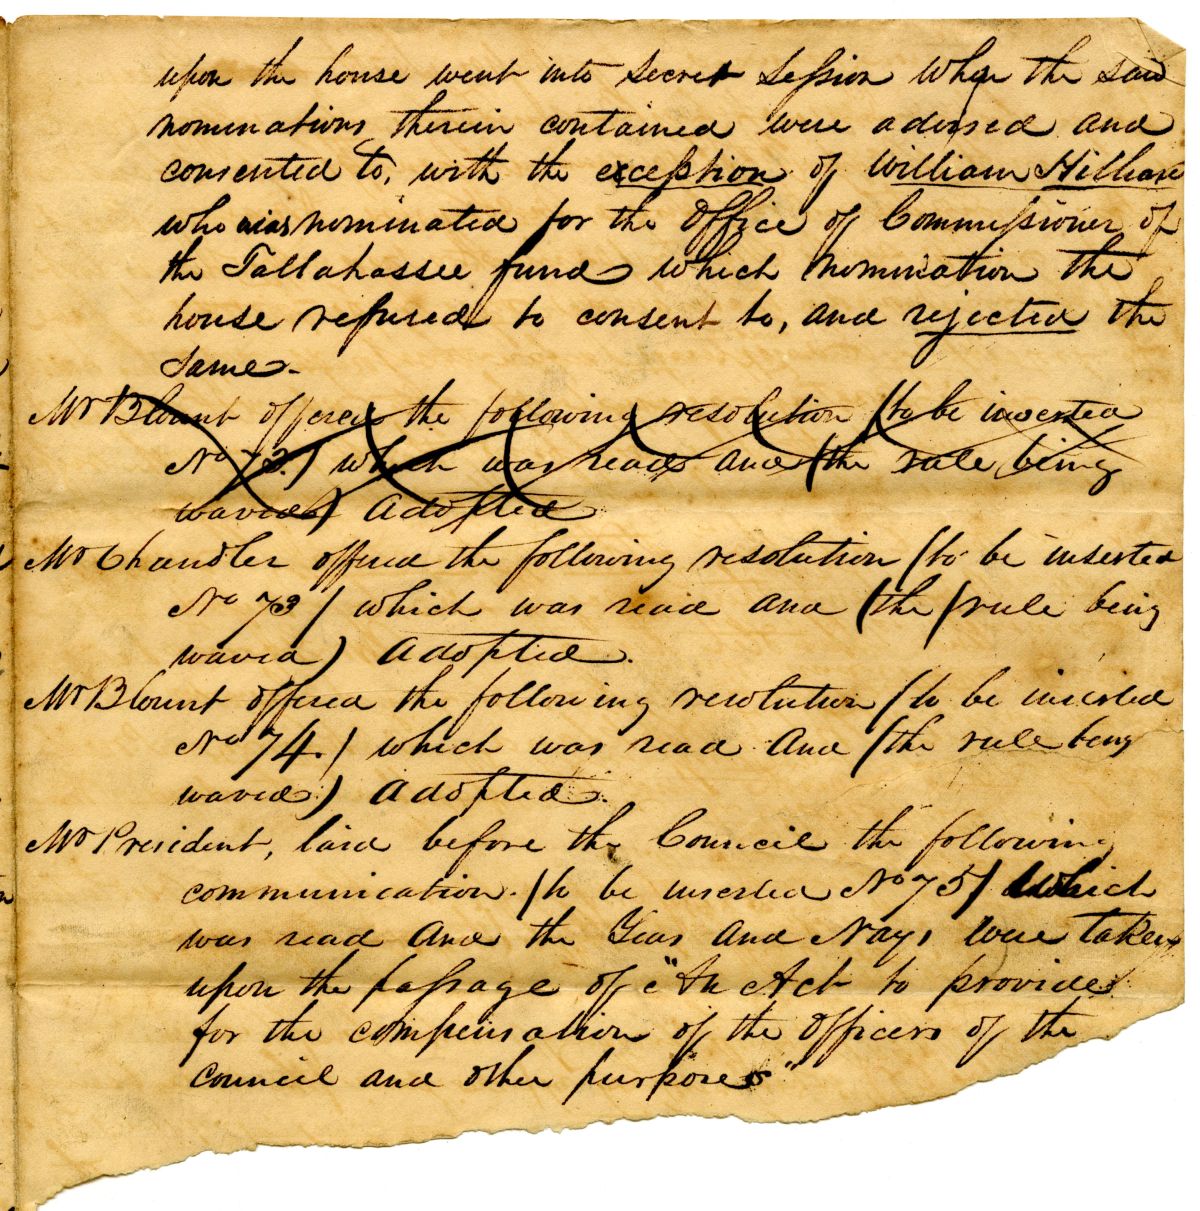 upon the house went into secret Session when the said
nominations therein contained were advised and
consented to, with the exception of William Hilliard
who was nominated for the Office of Commissioner of
the Tallahassee fund which nomination the
house refused to consent to, and rejected the
same.
Mr Blount offered the following resolution (to be inserted
No 73.) which was read and (the rule being
waved) adopted
Mr Chandler offered the following resolution (to be inserted
No 73) which was read and (the rule being
waved) adopted.
Mr Blount offered the following resolution (to be inserted
No 74.) which was read and (the rule being
waved.) adopted.
Mr President, laid before the Council the following
communication. (to be inserted No 75) which
was read and the Yeas and Nays were taken
upon the passage of "An Act to provide
for the compensation of the Officers of the
council and other purposes"